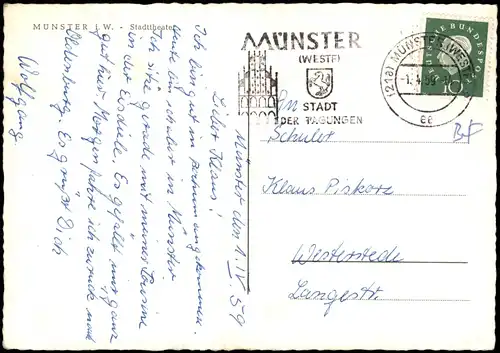 MÜNSTER i. W. - Stadttheater
Münster den 1. IV. 59
Lieber Klaus!
Ich bin gut in Bochum angekommen
und schreibe in Münster
Ich sitze gerade mit meiner Cousine
in der Eisdiele. Es gefällt mir ganz
gut hier. Morgen fahre ich zurück nach
Oldenburg. Es grüßt Dich
Wolfgang
MÜNSTER
(WESTF)
STADT
DER TAGUNGEN
(21a) MÜNSTER (WESTF)
-1.4.59
ee
DEUTSCHE BUNDESPOST
10
BF
An
Schüler
Klaus Piskorz
Westerstede
Langestr.